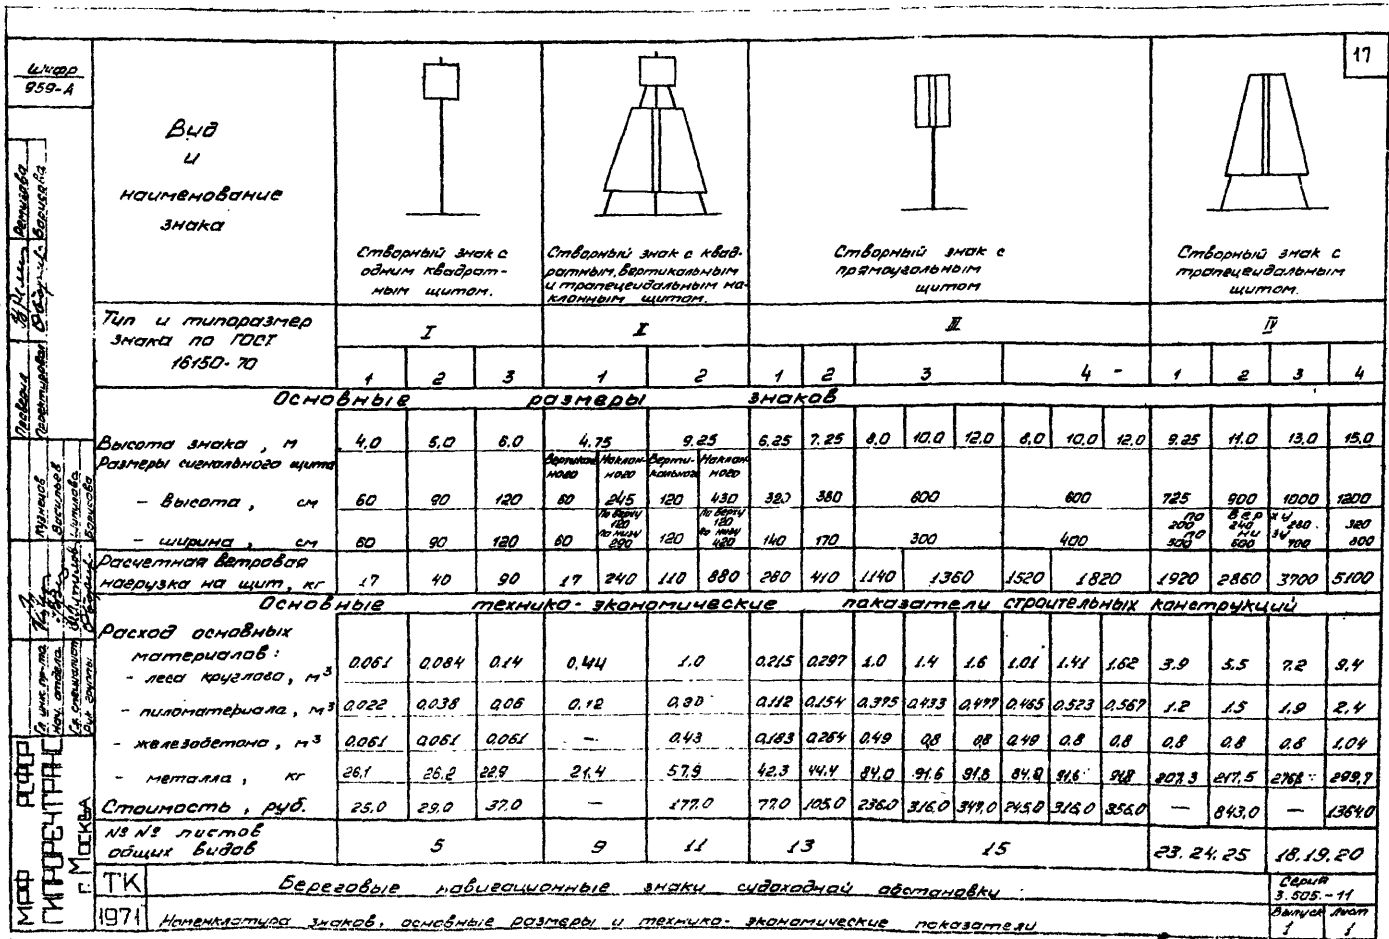 17
Шифр
959-А
Вид
и
наименование
знака
Створный знак с
одним квадрат-
ным щитом.
Створный знак с квад-
ратным, вертикальным
и трапецеидальным на-
клонным щитом.
Створный знак с
прямоугольным
щитом
Створный знак с
трапецеидальным
щитом.
Тип и типоразмер
знака по ГОСТ
16150-70
I II III IV
1 2 3 1 2 1 2 3 4 - 1 2 3 4
Основные размеры знаков
Высота знака, м 4,0 5,0 6.0 4.75 9.25 6.25 7.25 8,0 10,0 12,0 8,0 10,0 12,0 9.25 11.0 13,0 15,0
Размеры сигнального щита
- высота, см 60 90 120 60 245 120 430 320 380 600 600 725 900 1000 1200
По верху 120 По верху 120 по верху 200 240 280 320
- ширина, см 60 90 120 60 по низу 290 120 по низу 420 140 170 300 400 по низу 500 600 700 800
Расчетная ветровая
нагрузка на щит, кг 17 40 90 17 240 110 880 260 410 1140 1360 1520 1820 1920 2860 3700 5100
Основные технико-экономические показатели строительных конструкций
Расход основных
материалов:
- леса круглого, м³ 0.061 0,084 0.14 0,44 1.0 0.215 0.297 1.0 1.4 1.6 1.01 1.41 1.62 3.9 5.5 7.2 9,4
- пиломатериала, м³ 0,022 0,038 0,06 0,12 0,30 0.112 0.154 0,375 0,433 0,477 0.465 0.523 0.567 1.2 1.5 1.9 2.4
- железобетона, м³ 0.061 0,061 0.061 - 0.43 0.183 0.264 0.49 0,8 0,8 0,49 0.8 0,8 0,8 0.8 0.8 1.04
- металла, кг 26,1 26.2 22.9 21.4 57.9 42.3 44.4 84,0 91.6 91.8 84.0 91,6 91.8 207.3 217.5 299,7
Стоимость, руб. 25.0 29.0 37.0 - 177.0 77.0 105.0 236.0 316.0 349,0 245.0 316.0 356.0 - 843.0 - 1364.0
№№ листов
общих видов 5 9 11 13 15 23. 24. 25 18. 19. 20
ТК
1971
Береговые навигационные знаки судоходной обстановки
Номенклатура знаков, основные размеры и технико-экономические показатели
Серия
3.505.-11
Выпуск Лист
1 1
МРФ РСФСР
ГИПРОРЕЧТРАНС
г. Москва